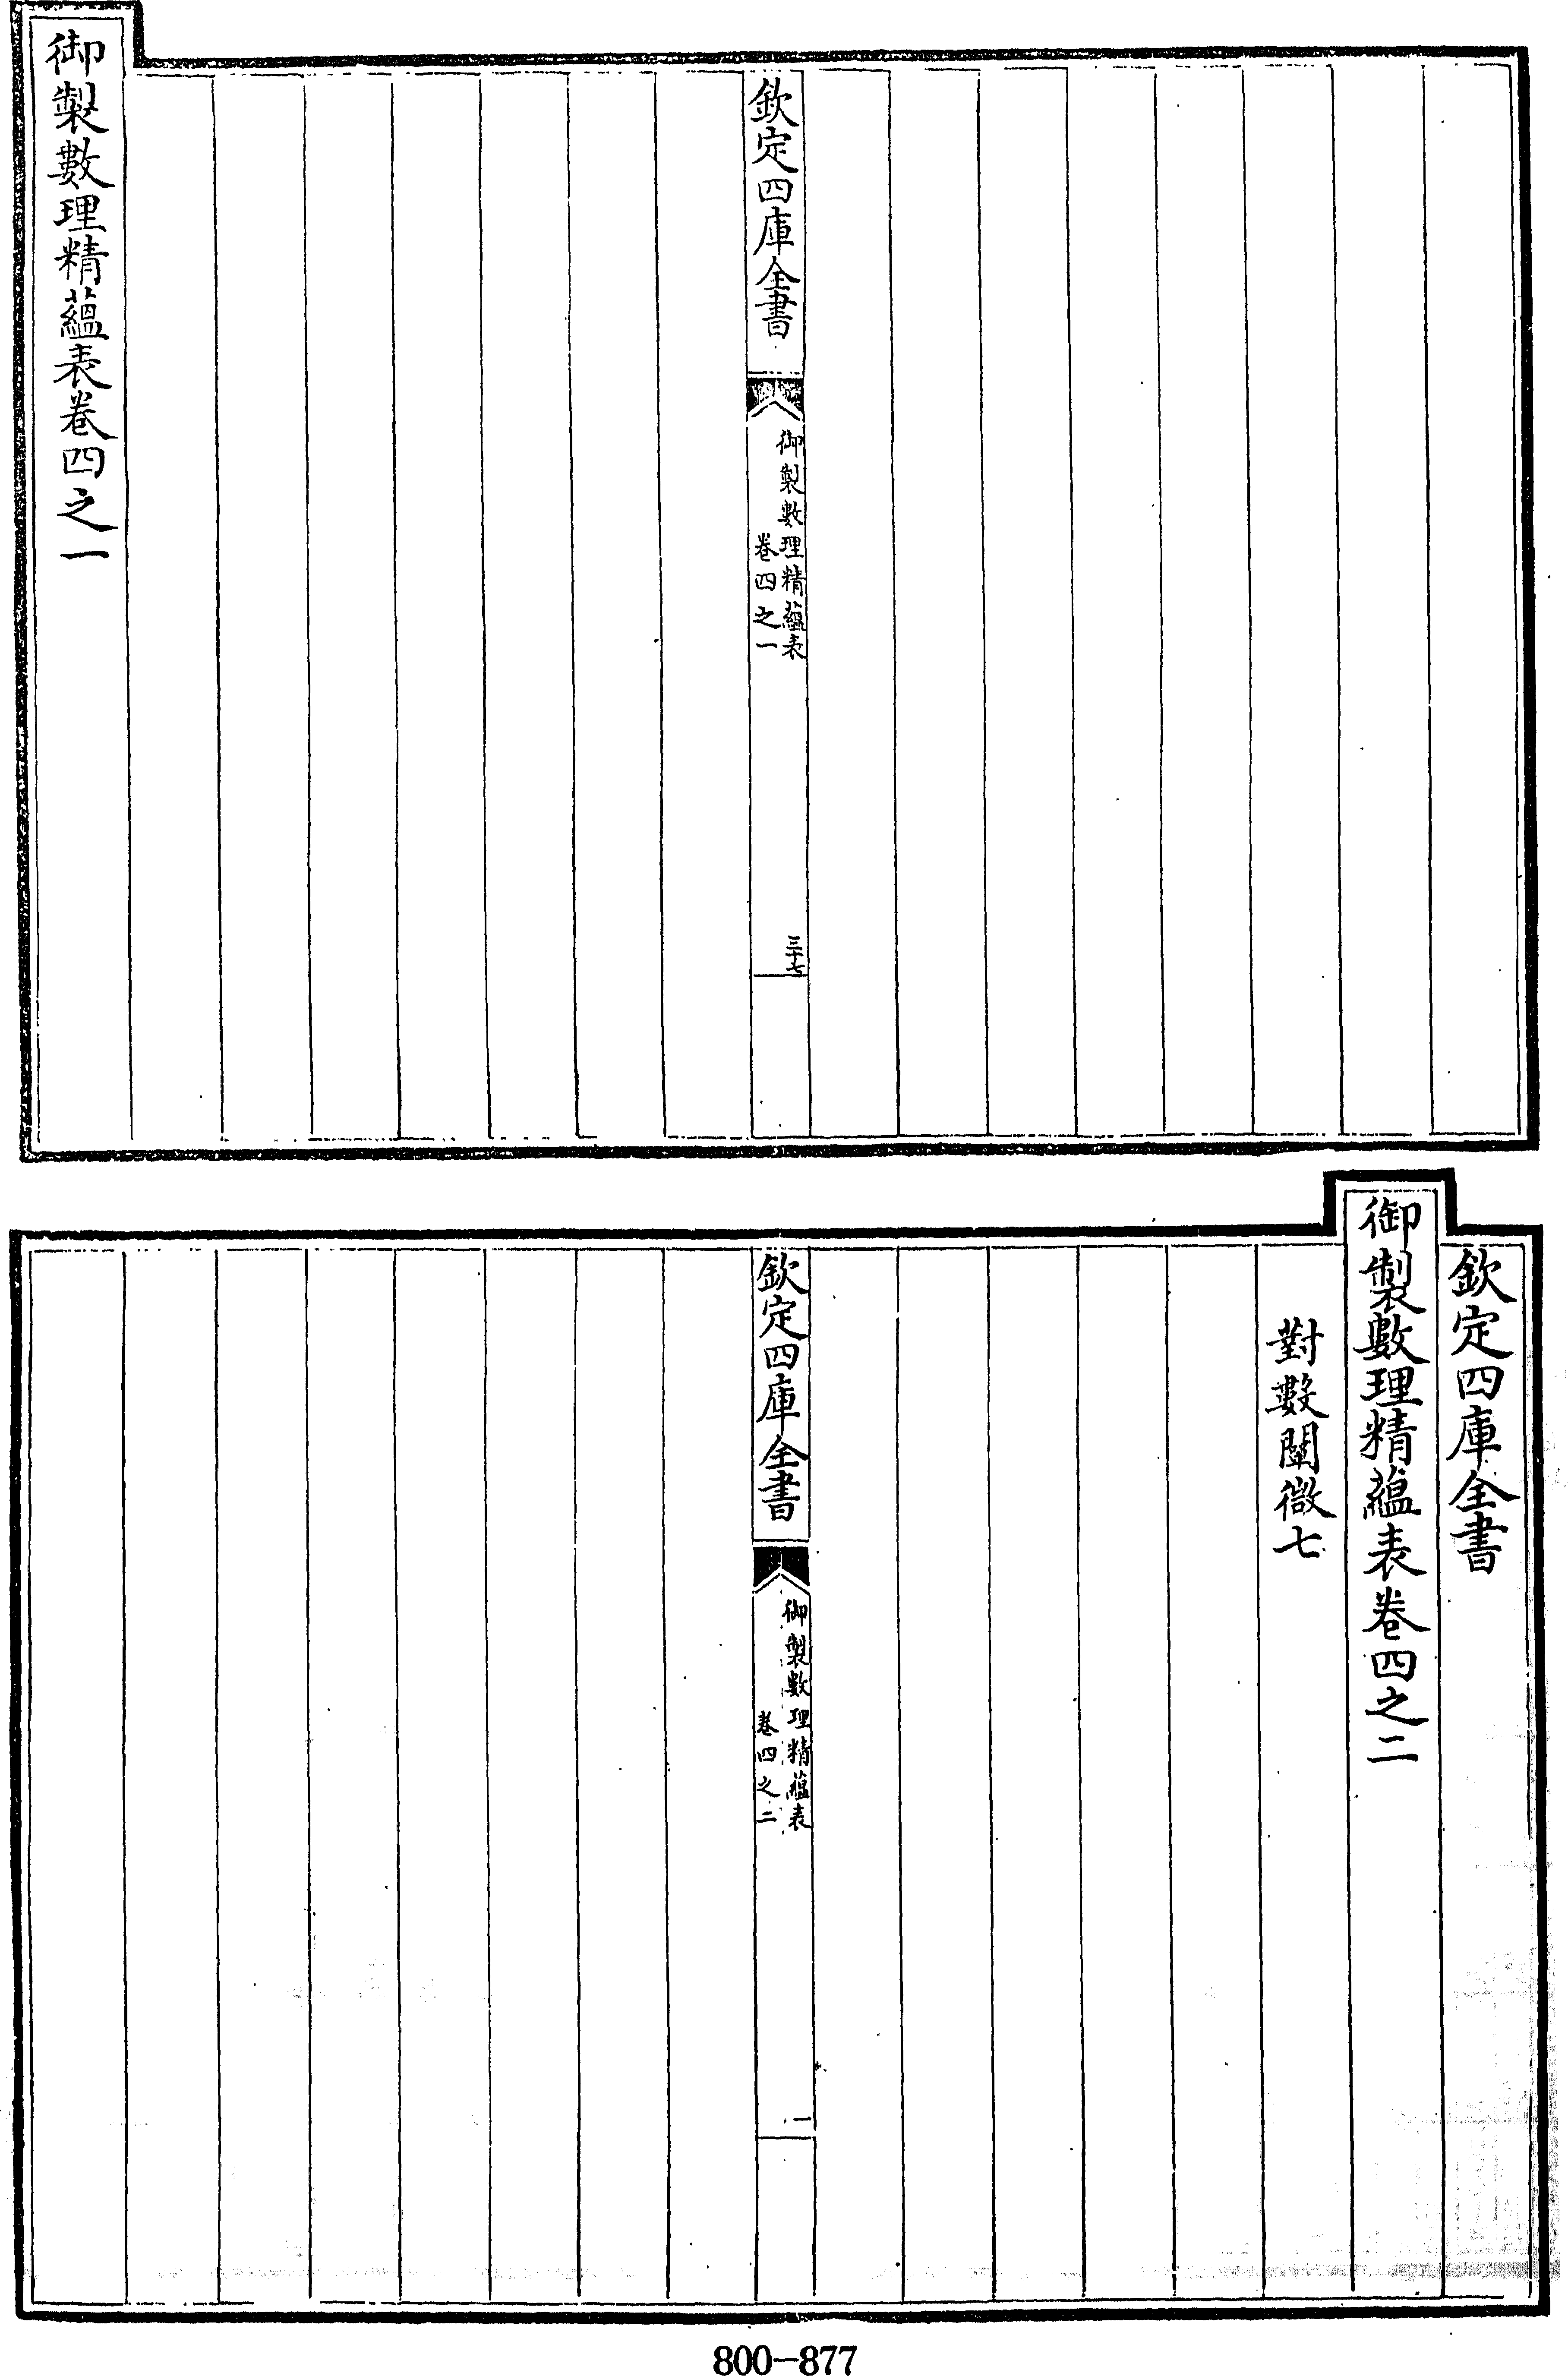 欽定四庫全書
御製數理精蘊表
卷四之一
三十七
御製數理精蘊表卷四之一
欽定四庫全書
御製數理精蘊表卷四之二
對數闡微七
欽定四庫全書
御製數理精蘊表
卷四之二
一
800-877